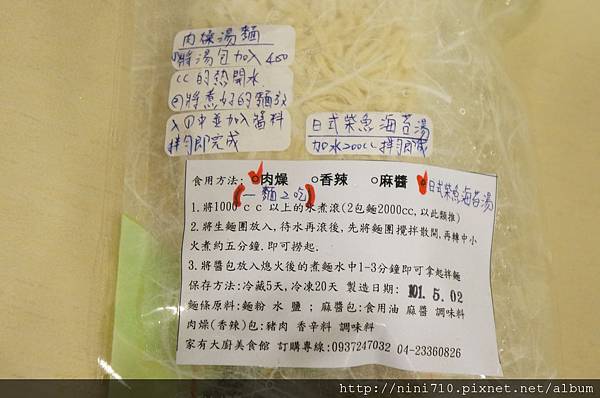 肉燥湯麵
①將湯包加入400
CC的熱開水
②將煮好的麵放
入①中並加入醬料
拌勻即完成
日式柴魚海苔湯
加水200cc拌勻即成
食用方法: ○肉燥 ○香辣 ○麻醬 ○日式柴魚海苔湯
(一麵2吃)
1.將1000cc以上的水煮滾(2包麵2000cc,以此類推)
2.將生麵團放入,待水再滾後,先將麵團攪拌散開,再轉中小
火煮約五分鐘.即可撈起.
3.將醬包放入熄火後的煮麵水中1-3分鐘即可拿起拌麵
保存方法:冷藏5天,冷凍20天 製造日期: 101.5.02
麵條原料:麵粉 水 鹽 ; 麻醬包:食用油 麻醬 調味料
肉燥(香辣)包:豬肉 香辛料 調味料
家有大廚美食館 訂購專線:0937247032 04-23360826
http://nini710.pixnet.net/album